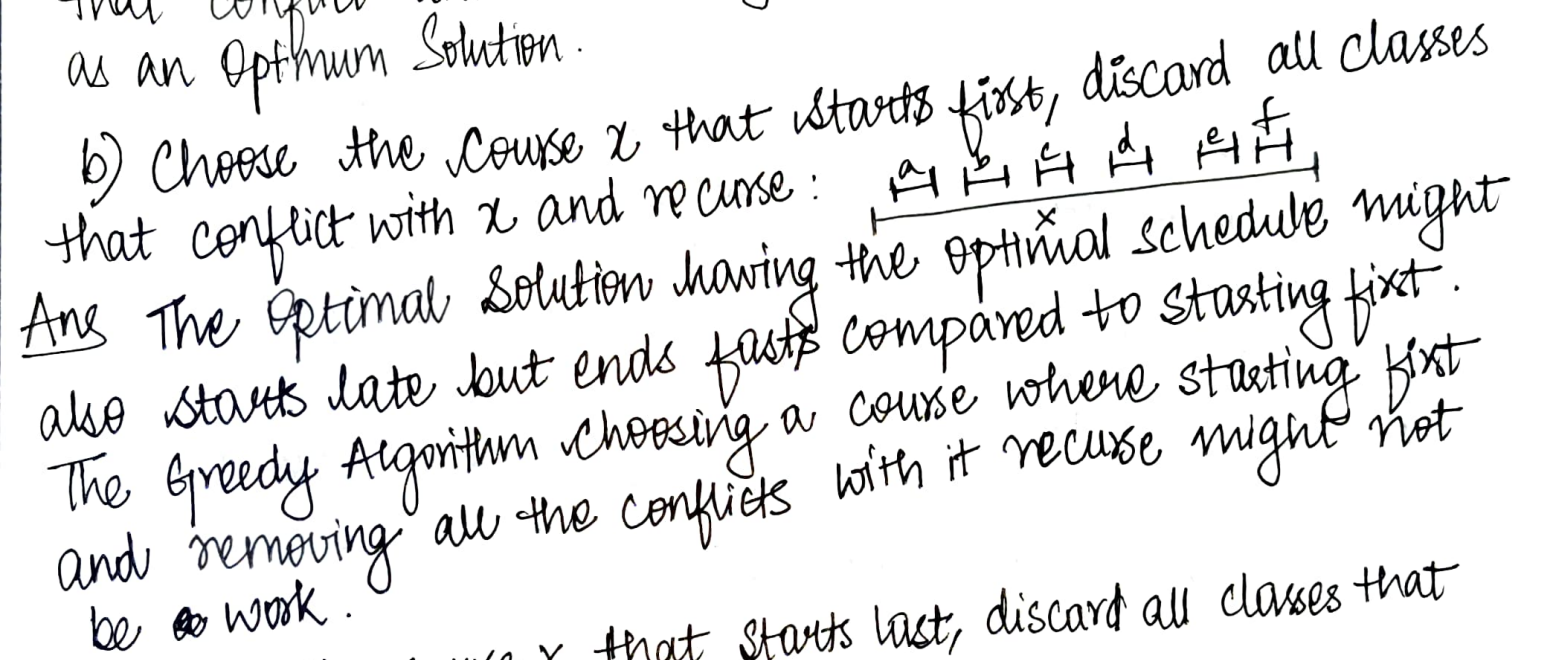 that conflict
as an Optimum Solution.
b) Choose the course x that starts first, discard all classes
that conflict with x and recurse :
a b c d e f
x
Ans The Optimal Solution having the optimal schedule might
also starts late but ends fasts compared to starting first.
The Greedy Algorithm choosing a course where starting first
and removing all the conflicts with it recurse might not
be work.
x that starts last, discard all classes that